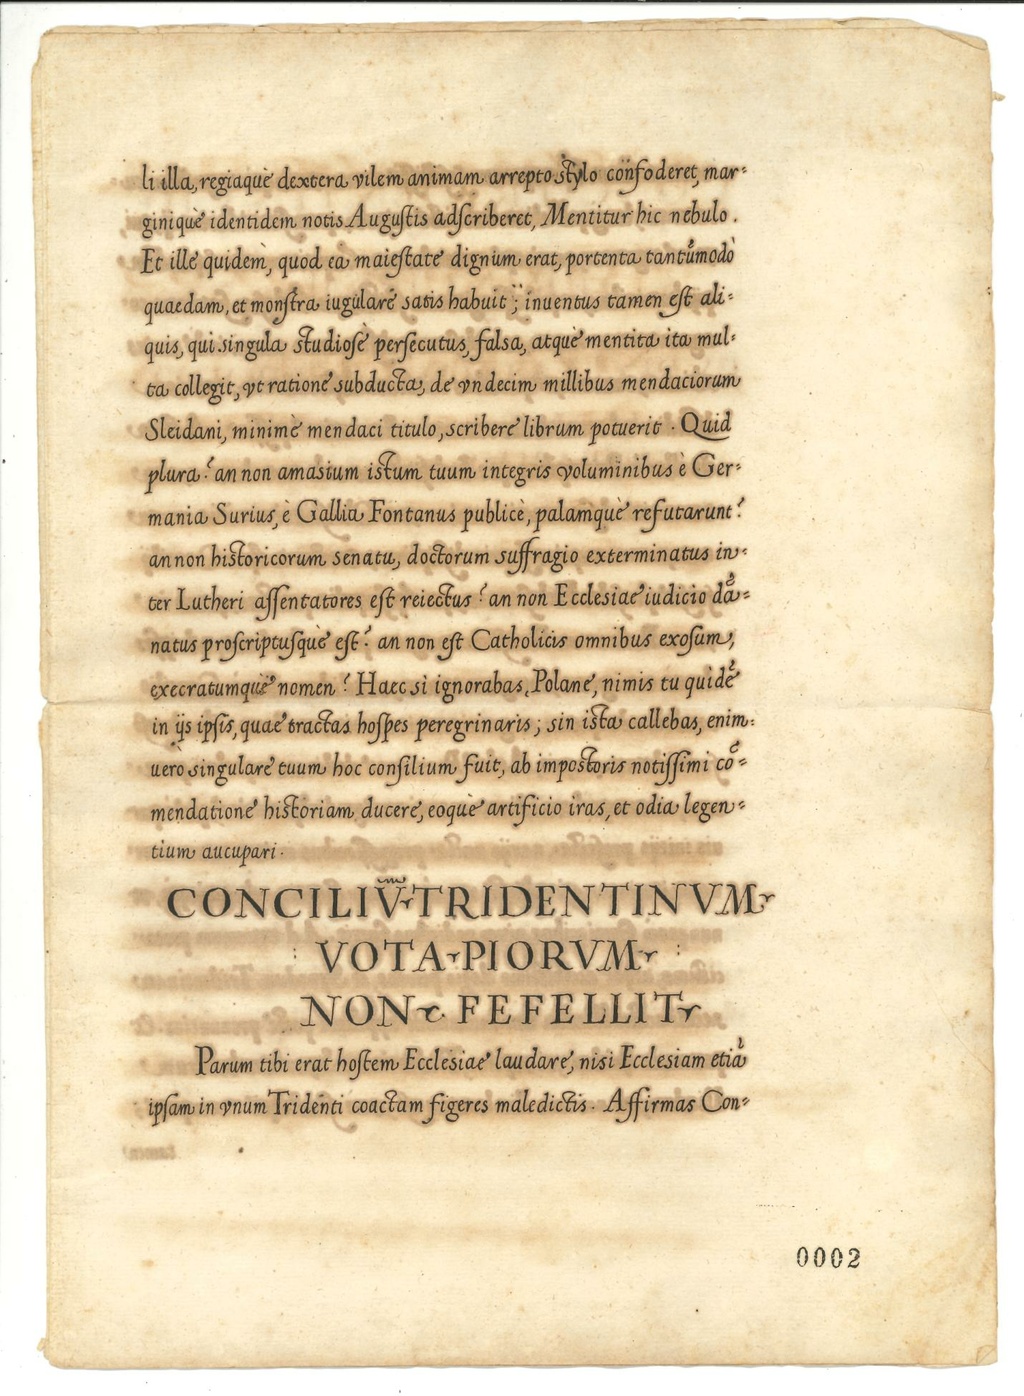 li illa, regiaquè dextera vilem animam arrepto stylo cõnfoderet, mar-
giniquè identidem notis Augustis adscriberet, Mentitur hic nebulo.
Et ille quidem, quod ea maiestate dignum erat, portenta tantũmodò
quaedam, et monstra iugulare satis habuit; inuentus tamen est ali-
quis, qui singula studiosè persecutus, falsa, atquè mentita ita mul-
ta collegit, vt ratione subducta, de vndecim millibus mendaciorum
Sleidani, minimè mendaci titulo, scribere librum potuerit. Quid
plura? an non amasium istum tuum integris voluminibus è Ger-
mania Surius, è Gallia Fontanus publicè, palamquè refutarunt?
an non historicorum senatu, doctorum suffragio exterminatus in-
ter Lutheri assentatores est reiectus? an non Ecclesiae iudicio dã-
natus proscriptusquè est? an non est Catholicis omnibus exosum,
execratumquè nomen? Haec si ignorabas, Polane, nimis tu quidẽ
in ijs ipsis, quae tractas hospes peregrinaris; sin ista callebas, enim-
uèro singulare tuum hoc consilium fuit, ab impostoris notissimi cõ-
mendatione historiam ducere, eoquè artificio iras, et odia legen-
tium aucupari.
CONCILIṼ TRIDENTINVM
VOTA PIORVM
NON FEFELLIT
Parum tibi erat hostem Ecclesiae laudare, nisi Ecclesiam etiã
ipsam in vnum Tridenti coactam figeres maledictis. Affirmas Con-
0002